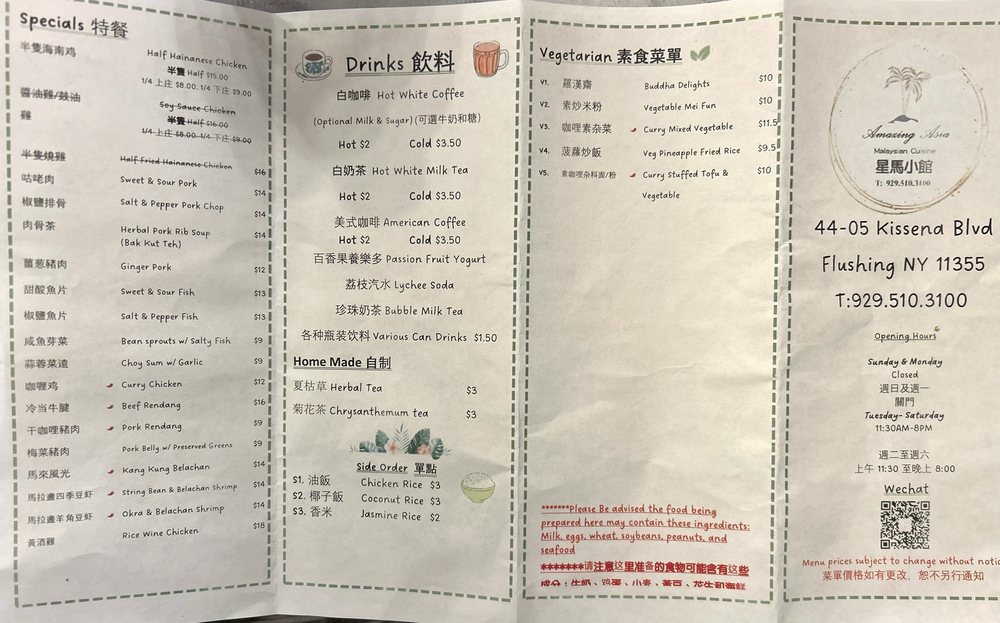 Specials 特餐
半隻海南鸡 Half Hainanese Chicken
半隻 Half $15.00
1/4 上庄 $8.00, 1/4 下庄 $9.00
醬油雞/鼓油雞 Soy Sauce Chicken
半隻 Half $16.00
1/4 上庄 $8.00, 1/4 下庄 $9.00
半隻燒雞 Half Fried Hainanese Chicken $16
咕咾肉 Sweet & Sour Pork $14
椒鹽排骨 Salt & Pepper Pork Chop $14
肉骨茶 Herbal Pork Rib Soup $14
(Bak Kut Teh)
薑葱豬肉 Ginger Pork $12
甜酸魚片 Sweet & Sour Fish $13
椒鹽魚片 Salt & Pepper Fish $13
咸魚芽菜 Bean sprouts w/ Salty Fish $9
蒜蓉菜遠 Choy Sum w/ Garlic $9
咖喱鸡 Curry Chicken $12
冷当牛腱 Beef Rendang $16
干咖哩豬肉 Pork Rendang $9
梅菜豬肉 Pork Belly w/ Preserved Greens $9
馬來風光 Kang Kung Belachan $14
馬拉盞四季豆虾 String Bean & Belachan Shrimp $14
馬拉盞羊角豆虾 Okra & Belachan Shrimp $14
黃酒雞 Rice Wine Chicken $18
Drinks 飲料
白咖啡 Hot White Coffee
(Optional Milk & Sugar) (可選牛奶和糖)
Hot $2 Cold $3.50
白奶茶 Hot White Milk Tea
Hot $2 Cold $3.50
美式咖啡 American Coffee
Hot $2 Cold $3.50
百香果養樂多 Passion Fruit Yogurt
荔枝汽水 Lychee Soda
珍珠奶茶 Bubble Milk Tea
各种瓶装饮料 Various Can Drinks $1.50
Home Made 自制
夏枯草 Herbal Tea $3
菊花茶 Chrysanthemum tea $3
Side Order 單點
S1. 油飯 Chicken Rice $3
S2. 椰子飯 Coconut Rice $3
S3. 香米 Jasmine Rice $2
Vegetarian 素食菜單
V1. 羅漢齋 Buddha Delights $10
V2. 素炒米粉 Vegetable Mei Fun $10
V3. 咖哩素杂菜 Curry Mixed Vegetable $11.5
V4. 菠蘿炒飯 Veg Pineapple Fried Rice $9.5
V5. 素咖哩杂料面/粉 Curry Stuffed Tofu & $10
Vegetable
*******Please Be advised the food being
prepared here may contain these ingredients:
Milk, eggs, wheat, soybeans, peanuts, and
seafood
*******请注意这里准备的食物可能含有这些
成分：牛奶、鸡蛋、小麦、黃豆、花生和海鲜
Amazing Asia
Malaysian Cuisine
星馬小館
T: 929.510.3100
44-05 Kissena Blvd
Flushing NY 11355
T:929.510.3100
Opening Hours
Sunday & Monday
Closed
週日及週一
關門
Tuesday- Saturday
11:30AM-8PM
週二至週六
上午 11:30 至晚上 8:00
Wechat
Menu prices subject to change without notic
菜單價格如有更改，恕不另行通知